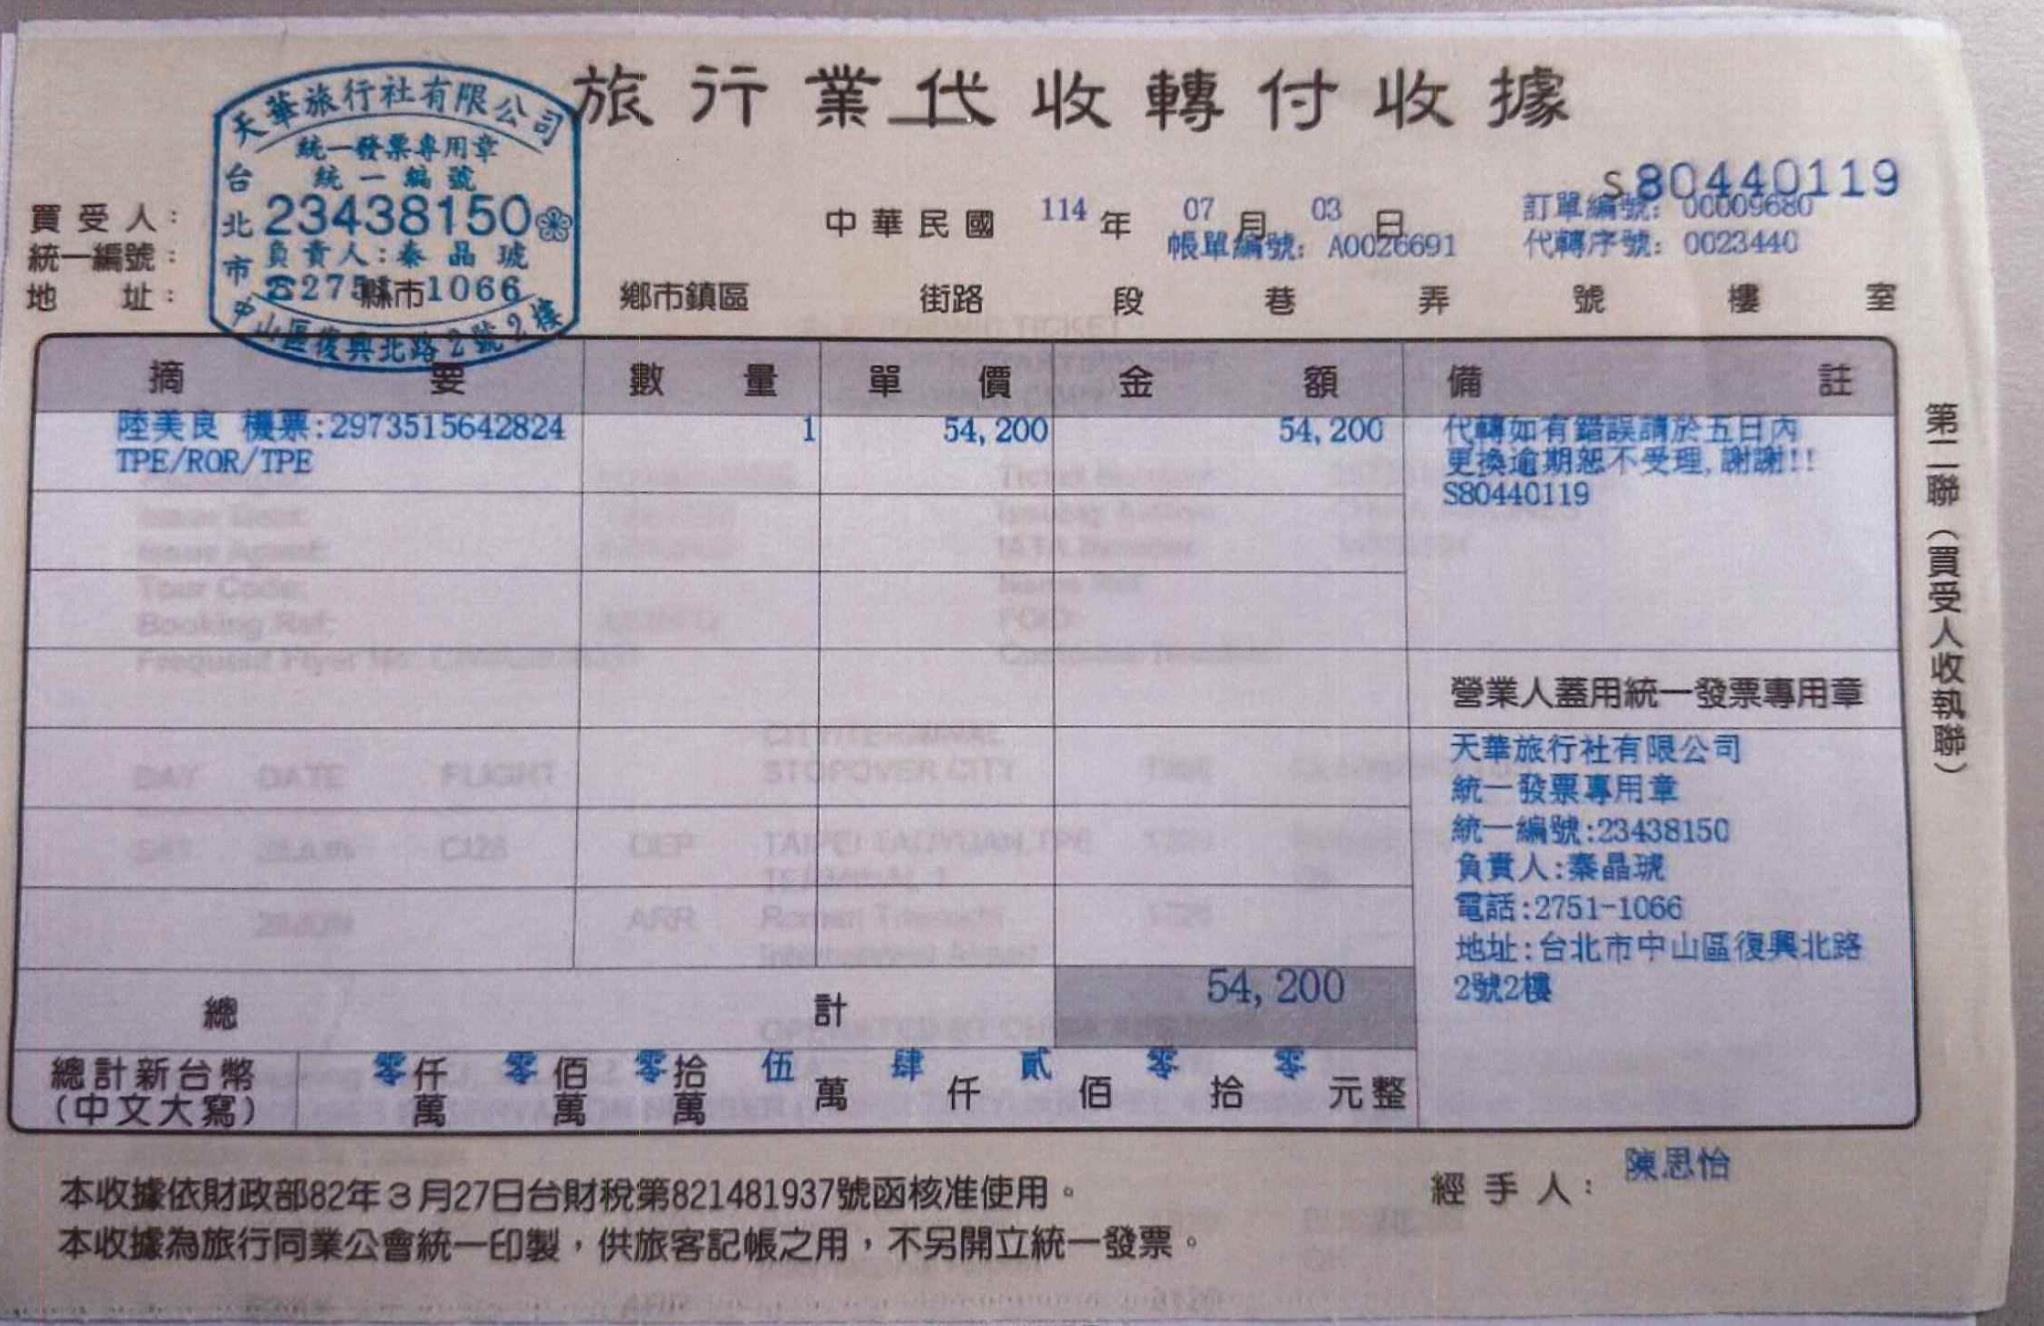 旅行業代收轉付收據
天華旅行社有限公司
統一發票專用章
統一編號
23438150
負責人:秦晶琥
☎2751-1066
台北市
中山區復興北路2號2樓
S80440119
買受人：
中華民國 114 年 07 月 03 日
訂單編號: 00009680
統一編號：
帳單編號: A0026691
代轉序號: 0023440
地址： 縣市 鄉市鎮區 街路 段 巷 弄 號 樓 室
摘要 數量 單價 金額 備註
陸美良 機票:2973515642824 1 54,200 54,200
TPE/ROR/TPE
代轉如有錯誤請於五日內
更換逾期恕不受理,謝謝!!
S80440119
營業人蓋用統一發票專用章
天華旅行社有限公司
統一發票專用章
統一編號:23438150
負責人:秦晶琥
電話:2751-1066
地址:台北市中山區復興北路
2號2樓
總計 54,200
總計新台幣
(中文大寫)
零仟萬 零佰萬 零拾萬 伍萬 肆仟 貳佰 零拾 零元整
第二聯（買受人收執聯）
本收據依財政部82年3月27日台財稅第821481937號函核准使用。
經手人： 陳思怡
本收據為旅行同業公會統一印製，供旅客記帳之用，不另開立統一發票。
DAY DATE FLIGHT
STOPOVER CITY
Tour Code:
Booking Ref: